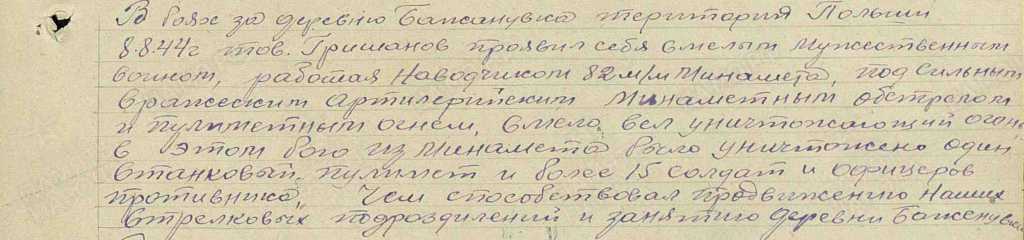 В боях за деревню Бажанувка територия Польши
8.8.44г тов. Гришанов проявил себя смелым мужественным
воином, работая наводчиком 82 м/м миномета, под сильным
вражеским артилерийским минаметным обстрелом
и пулиметным огнем, смело вел уничтожающий огонь
в этом бою из минамета было уничтожено один
станковый пулимет и более 15 солдат и офицеров
противника, Чем способствовал продвижению наших
стрелковых подрозделений и занятию деревни Баженувка